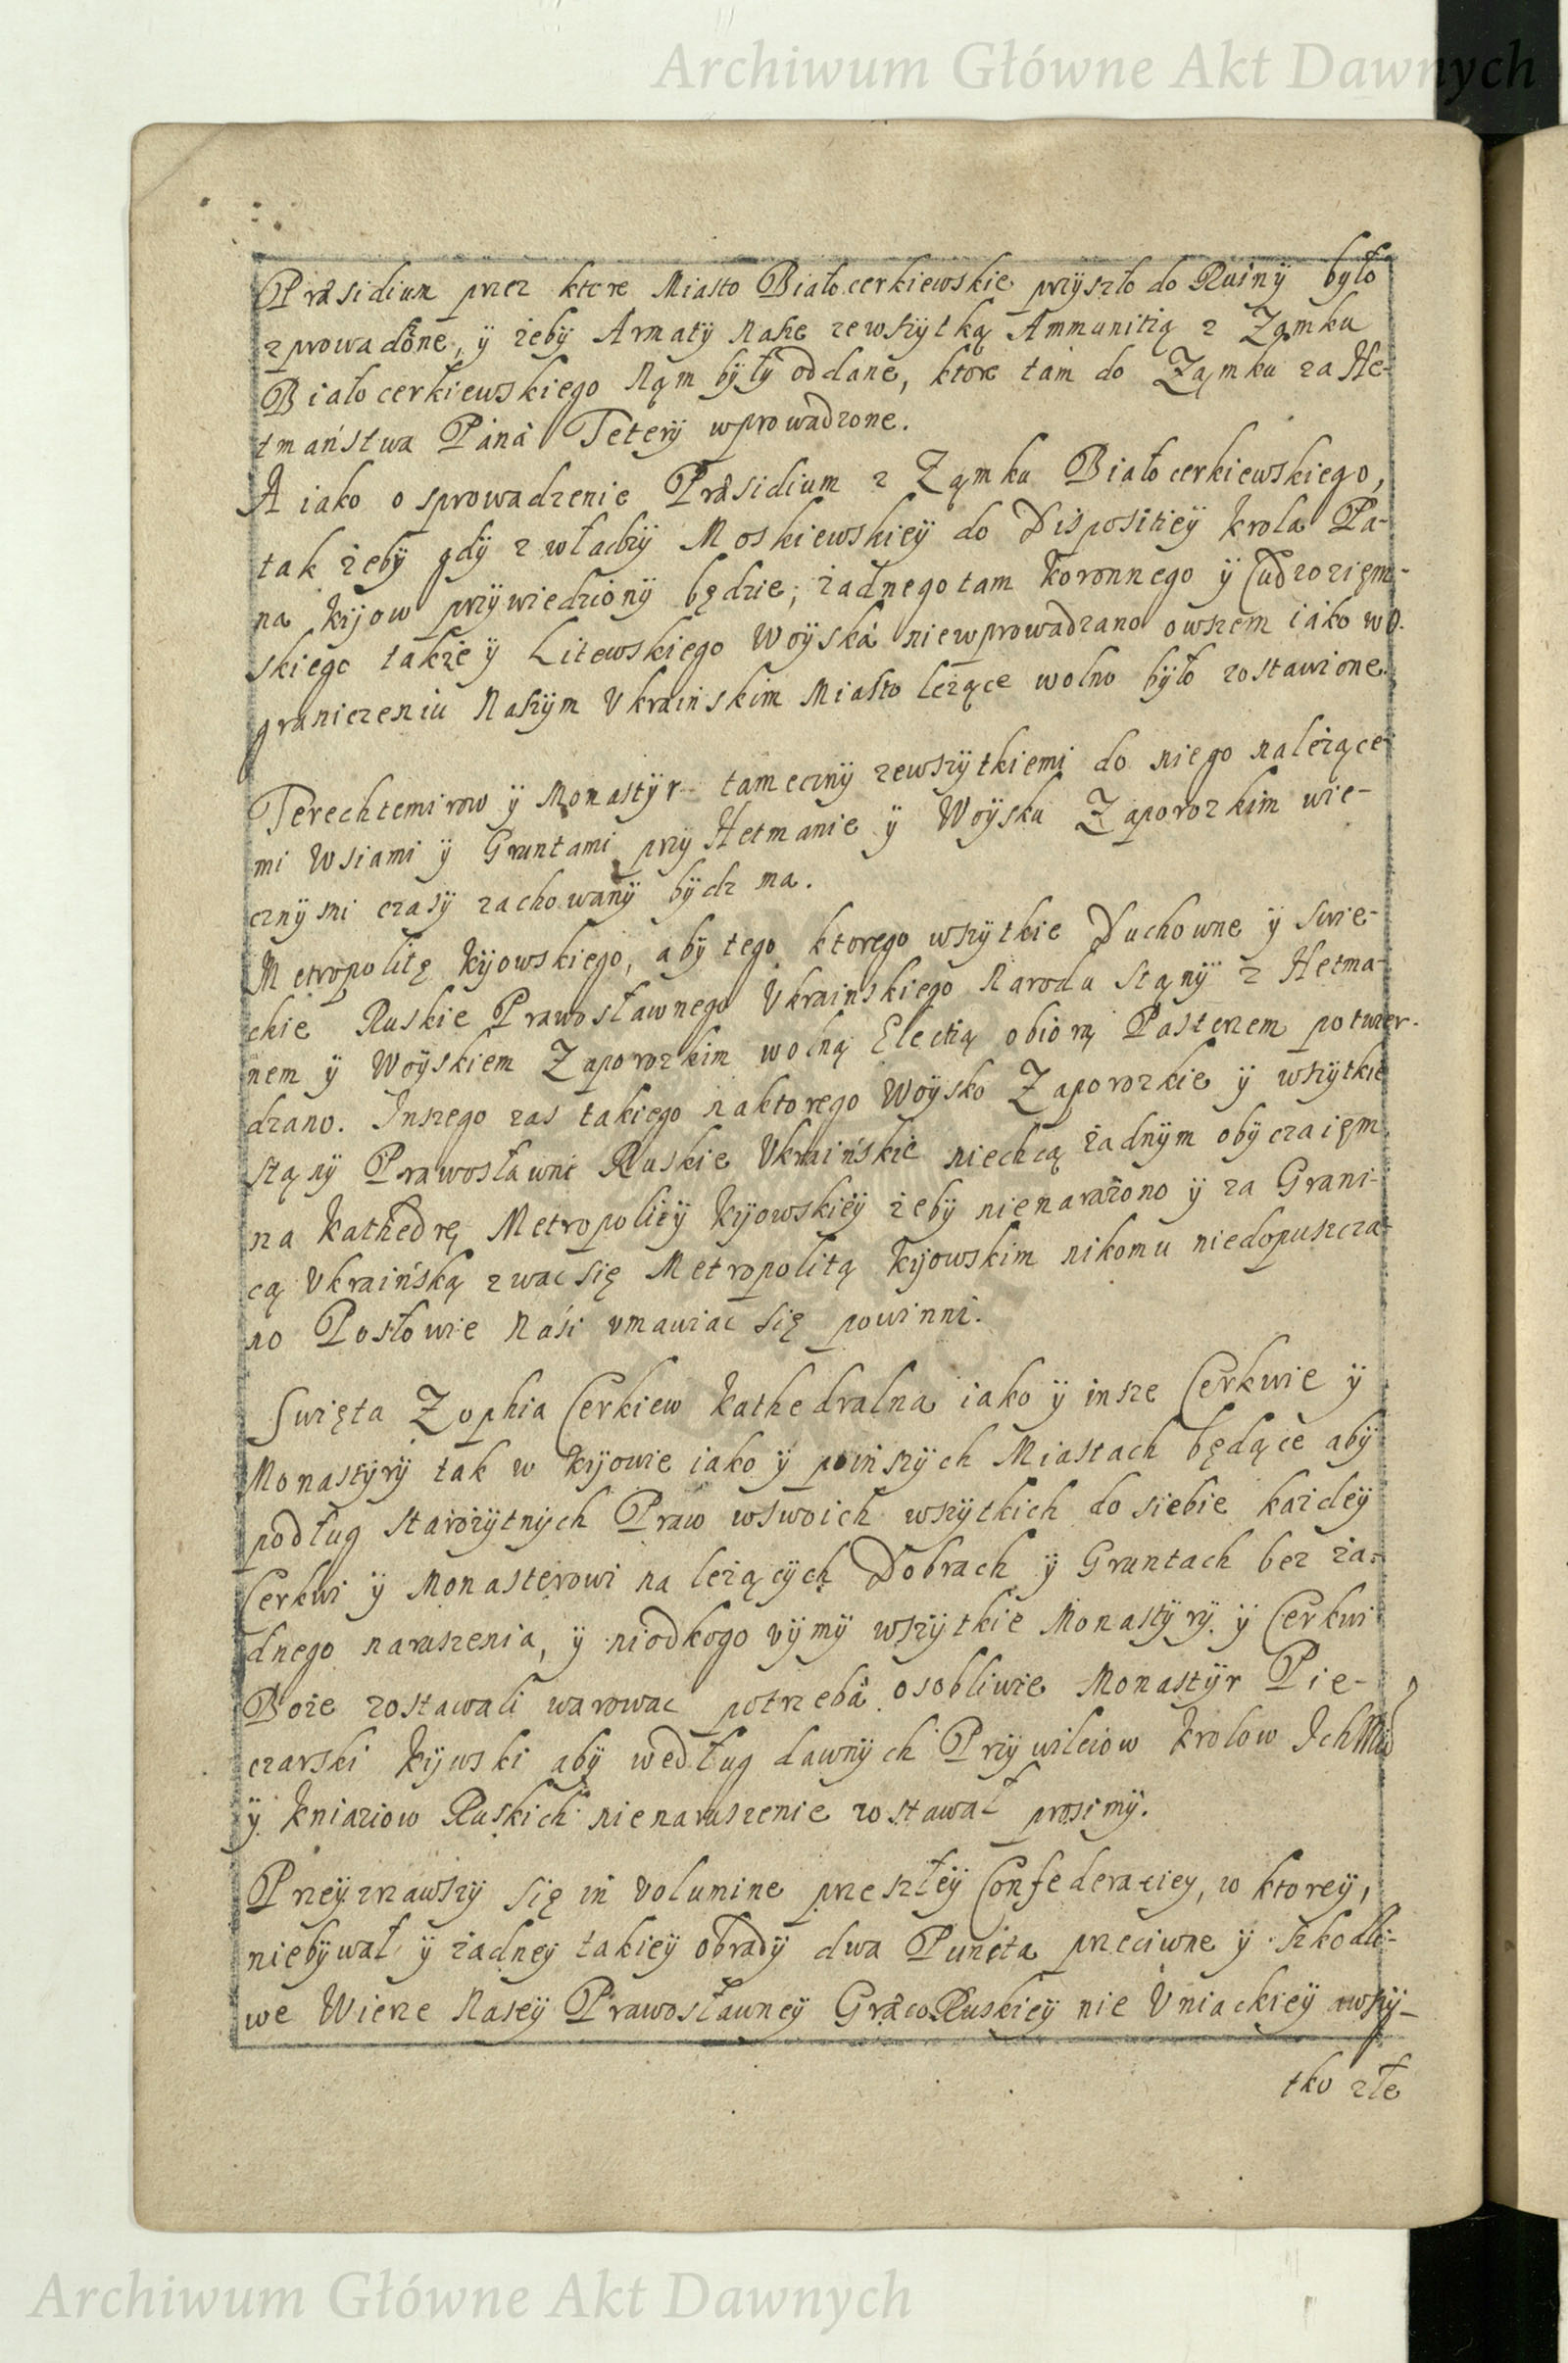 Archiwum Główne Akt Dawnych
Præsidium przez ktore Miasto Białocerkiewskie przyszło do Ruiny było
zprowadzone, ÿ żebÿ Armatÿ Nasze zewszÿtką Ammunitią z Ząmku
Białocerkiewskiego Nąm bÿłÿ oddane, ktore tam do Ząmku za He-
tmaństwa Pána Teterÿ wprowadzone.
A iako o sprowadzenie Præsidium z Ząmku Białocerkiewskiego,
tak żebÿ gdÿ z władzÿ Moskiewskieÿ do Dispositieÿ krola Pa-
na kijow przÿwiedzionÿ będzie, żadnego tam koronnego ÿ Cudzoziem-
skiego takżeÿ Litewskiego Woÿská niewprowadzano owszem iáko wo.
graniczeniu Naszÿm Vkrainskim Miasto leżące wolno bÿło zostawione.
Terechtemirow ÿ Monastÿr tamecznÿ zewszÿtkiemi do niego należące-
mi Wsiami ÿ Gruntami przy Hetmanie ÿ Woÿsku Zaporozkim wie-
cznÿmi czasÿ zachowanÿ bÿdz ma.
Metropolitę kijowskiego, abÿ tego ktorego wszÿtkie Duchowne ÿ Swie-
ckie Ruskie Prawosławnego Vkrainskiego Narodu Stąnÿ z Hetma-
nem ÿ Woÿskiem Zaporozkim wolną Electią obiorą Pasterzem potwier-
dzano. Inszego zas takiego naktorego Woÿsko Zaporozkie ÿ wszÿtkie
stąnÿ Prawosławne Ruskie Vkraińskie niechcą żadnÿm obÿczaięm
na kathedrę Metropolieÿ kijowskieÿ żebÿ nienarażono ÿ za Grani-
cą Vkraińską zwac się Metropolitą kijowskim nikomu niedopuszcza-
no Posłowie Náśi vmawiac się powinni.
Swięta Zophia Cerkiew kathedralna iako ÿ insze Cerkwie ÿ
Monastÿrÿ tak w kijowie iako ÿ poinszÿch Miastach będące abÿ
podług starożÿtnÿch Praw wswoich wszÿtkich do siebie każdeÿ
Cerkwi ÿ Monasterowi należącÿch Dobrach ÿ Gruntach bez ża-
dnego naruszenia, ÿ niodkogo vÿmÿ wszÿtkie Monastÿrÿ ÿ Cerkwi
Boże zostawali warowac potrzebá. osobliwie Monastÿr Pie-
czarski kijwski abÿ według dawnÿch Przÿwileiow krolow Ich Mci
ÿ kniaziow Ruskich nienaruszenie zostawał prosimÿ.
Przeÿzrzawszÿ się in Volumine przeszłeÿ Confederaciey, w ktoreÿ,
niebÿwał ÿ żadneÿ takieÿ obradÿ dwa Puncta przeciwne ÿ szkodli-
we Wierze Naseÿ Prawosławneÿ GræcoRuskieÿ nie Vniackieÿ awszÿ-
tko złe
Archiwum Główne Akt Dawnych